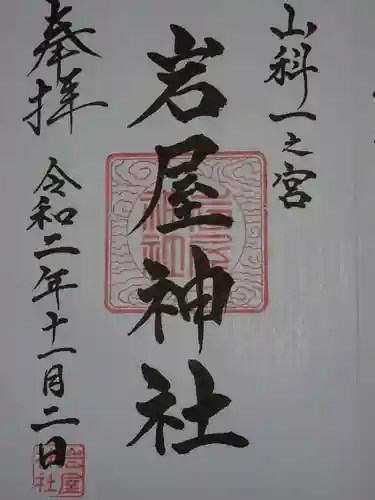 山科一之宮
岩屋神社
奉拝
令和二年十一月二日
岩屋
神社